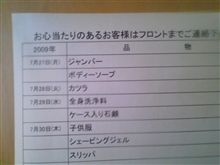 お心当たりのあるお客様はフロントまでご連絡
2009年 品 物
7月27日(月) ジャンパー
ボディーソープ
7月28日(火) カツラ
7月29日(水) 全身洗浄料
ケース入り石鹸
7月30日(木) 子供服
シェービングジェル
スリッパ